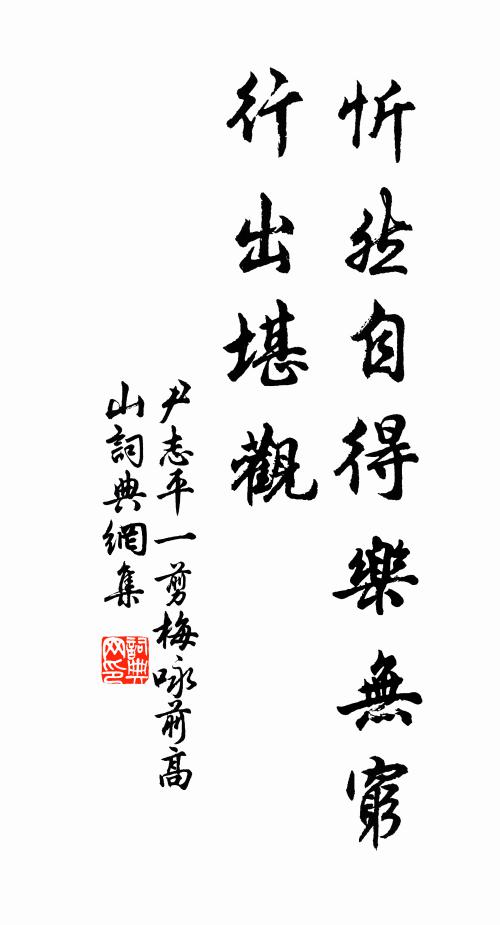 忻然自得樂無窮
行出堪觀
尹志平一剪梅咏前高
山詞典網集
詞典
网印